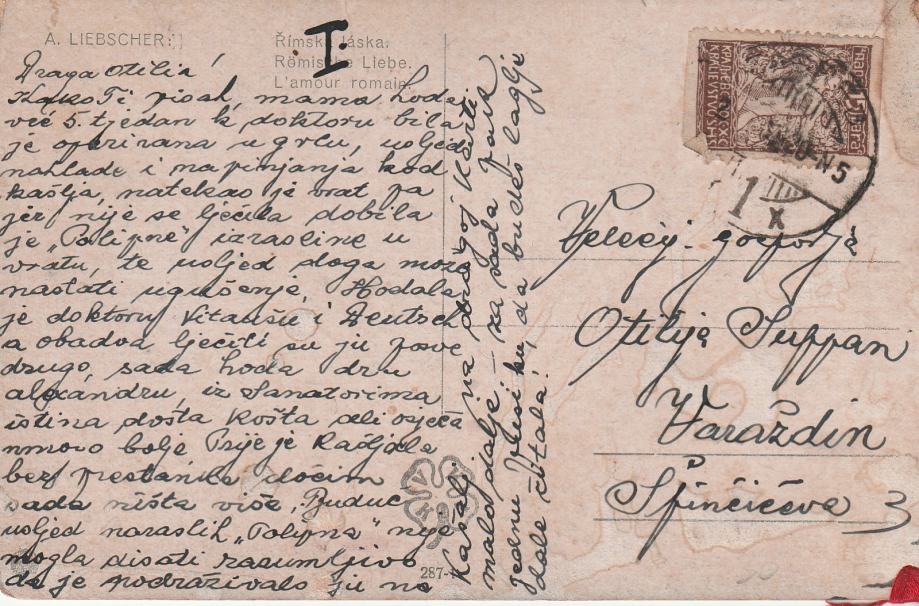 A. LIEBSCHER:
Římská láska.
Römische Liebe.
L'amour romain.
I.
Draga Otilia!
Kako Ti pisah, mama hoda
već 5. tjedan k doktoru bila
je operirana u grlu, usljed
nahlade i napinjanja kod
kašlja, natekao je vrat pa
jer nije se lječila dobila
je „Polipne" izrasline u
vratu, te usljed doga može
nastati ugušenje. Hodala
je doktoru Vitaušu i Deutsch
a obadva lječili su ju posve
drugo, sada hoda dru
alexandru, iz Sanatorima
istina dosta košta ali osjeća
mnovo bolje Prije je Kašljala
bez prestanka dočim
sada ništa više, Buduć
usljed naraslih „Polipna" nije
mogla disati razumljivo
da je podraživalo ju na
Kašalj na drugoj Karti
malo dalje - za sada pusu
jednu Wusi ku, da budeš laglje
dale čitala!
287-
Velecij. gospodja
Otilija Suppan
Varaždin
Špinčićeva 3
КРАЉЕВСТВО СХС
KRALJEVSTVO SHS
15